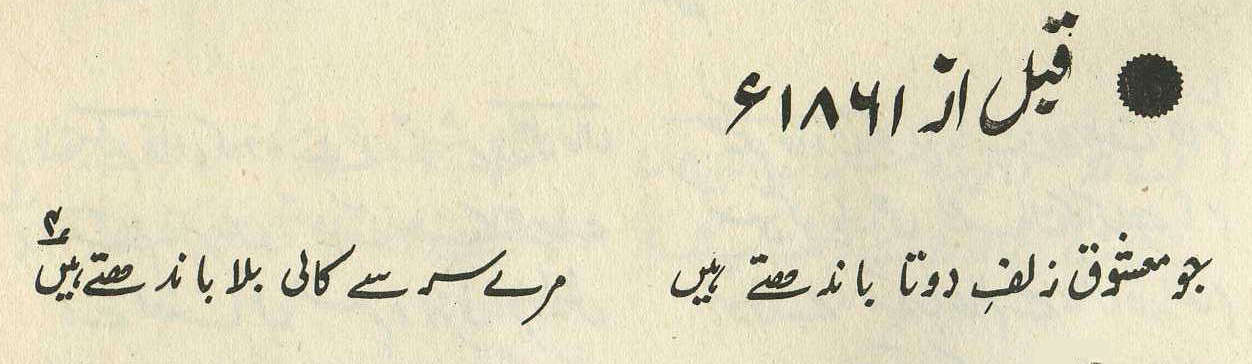 قبل از ۱۸۶۱ء
جو معشوق زلفِ دوتا باندھتے ہیں مرے سر سے کالی بلا باندھتے ہیں ۴؎